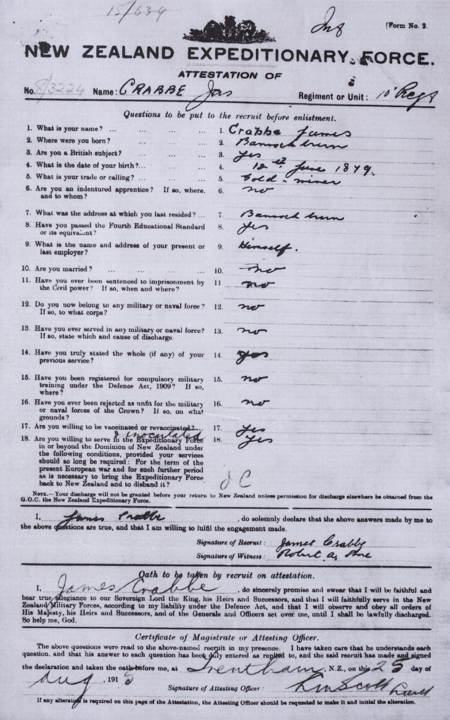 15/634
[Form No. 2.
NEW ZEALAND EXPEDITIONARY FORCE.
ATTESTATION OF
No. 8/3224 Name: CRABBE Jas Regiment or Unit: 10th Regt
Questions to be put to the recruit before enlistment.
1. What is your name? ... 1. Crabbe James
2. Where were you born? ... 2. Bannockburn
3. Are you a British subject? ... 3. Yes
4. What is the date of your birth? ... 4. 12th June 1879.
5. What is your trade or calling? ... 5. Gold-miner
6. Are you an indentured apprentice? If so, where, 6. no
and to whom?
7. What was the address at which you last resided? ... 7. Bannockburn
8. Have you passed the Fourth Educational Standard 8. Yes
or its equivalent?
9. What is the name and address of your present or 9. Himself.
last employer?
10. Are you married? ... 10. no
11. Have you ever been sentenced to imprisonment by 11. no
the Civil power? If so, when and where?
12. Do you now belong to any military or naval force? 12. no
If so, to what corps?
13. Have you ever served in any military or naval force? 13. no
If so, state which and cause of discharge.
14. Have you truly stated the whole (if any) of your 14. yes
previous service?
15. Have you been registered for compulsory military 15. no
training under the Defence Act, 1909? If so,
where?
16. Have you ever been rejected as unfit for the military 16. no
or naval forces of the Crown? If so, on what
grounds?
17. Are you willing to be vaccinated or revaccinated? 17. Yes
& inoculated
18. Are you willing to serve in the Expeditionary Force 18. Yes
in or beyond the Dominion of New Zealand under
the following conditions, provided your services
should so long be required: For the term of the
present European war and for such further period
as is necessary to bring the Expeditionary Force
back to New Zealand and to disband it? J C
NOTE.—Your discharge will not be granted before your return to New Zealand unless permission for discharge elsewhere be obtained from the
G.O.C. the New Zealand Expeditionary Force.
I, James Crabbe, do solemnly declare that the above answers made by me to
the above questions are true, and that I am willing to fulfil the engagement made.
Signature of Recruit: James Crabbe
Signature of Witness: Robert
Oath to be taken by recruit on attestation.
I, James Crabbe, do sincerely promise and swear that I will be faithful and
bear true allegiance to our Sovereign Lord the King, his Heirs and Successors, and that I will faithfully serve in the New
Zealand Military Forces, according to my liability under the Defence Act, and that I will observe and obey all orders of
His Majesty, his Heirs and Successors, and of the Generals and Officers set over me, until I shall be lawfully discharged.
So help me, God.
Certificate of Magistrate or Attesting Officer.
The above questions were read to the above-named recruit in my presence. I have taken care that he understands each
question, and that his answer to each question has been duly entered as replied to, and the said recruit has made and signed
the declaration and taken the oath before me, at Trentham, N.Z., on this 25 day of
Aug 1915
Signature of Attesting Officer: Scott
If any alteration is required on this page of the Attestation, the Attesting Officer should be requested to make it and initial the alteration.